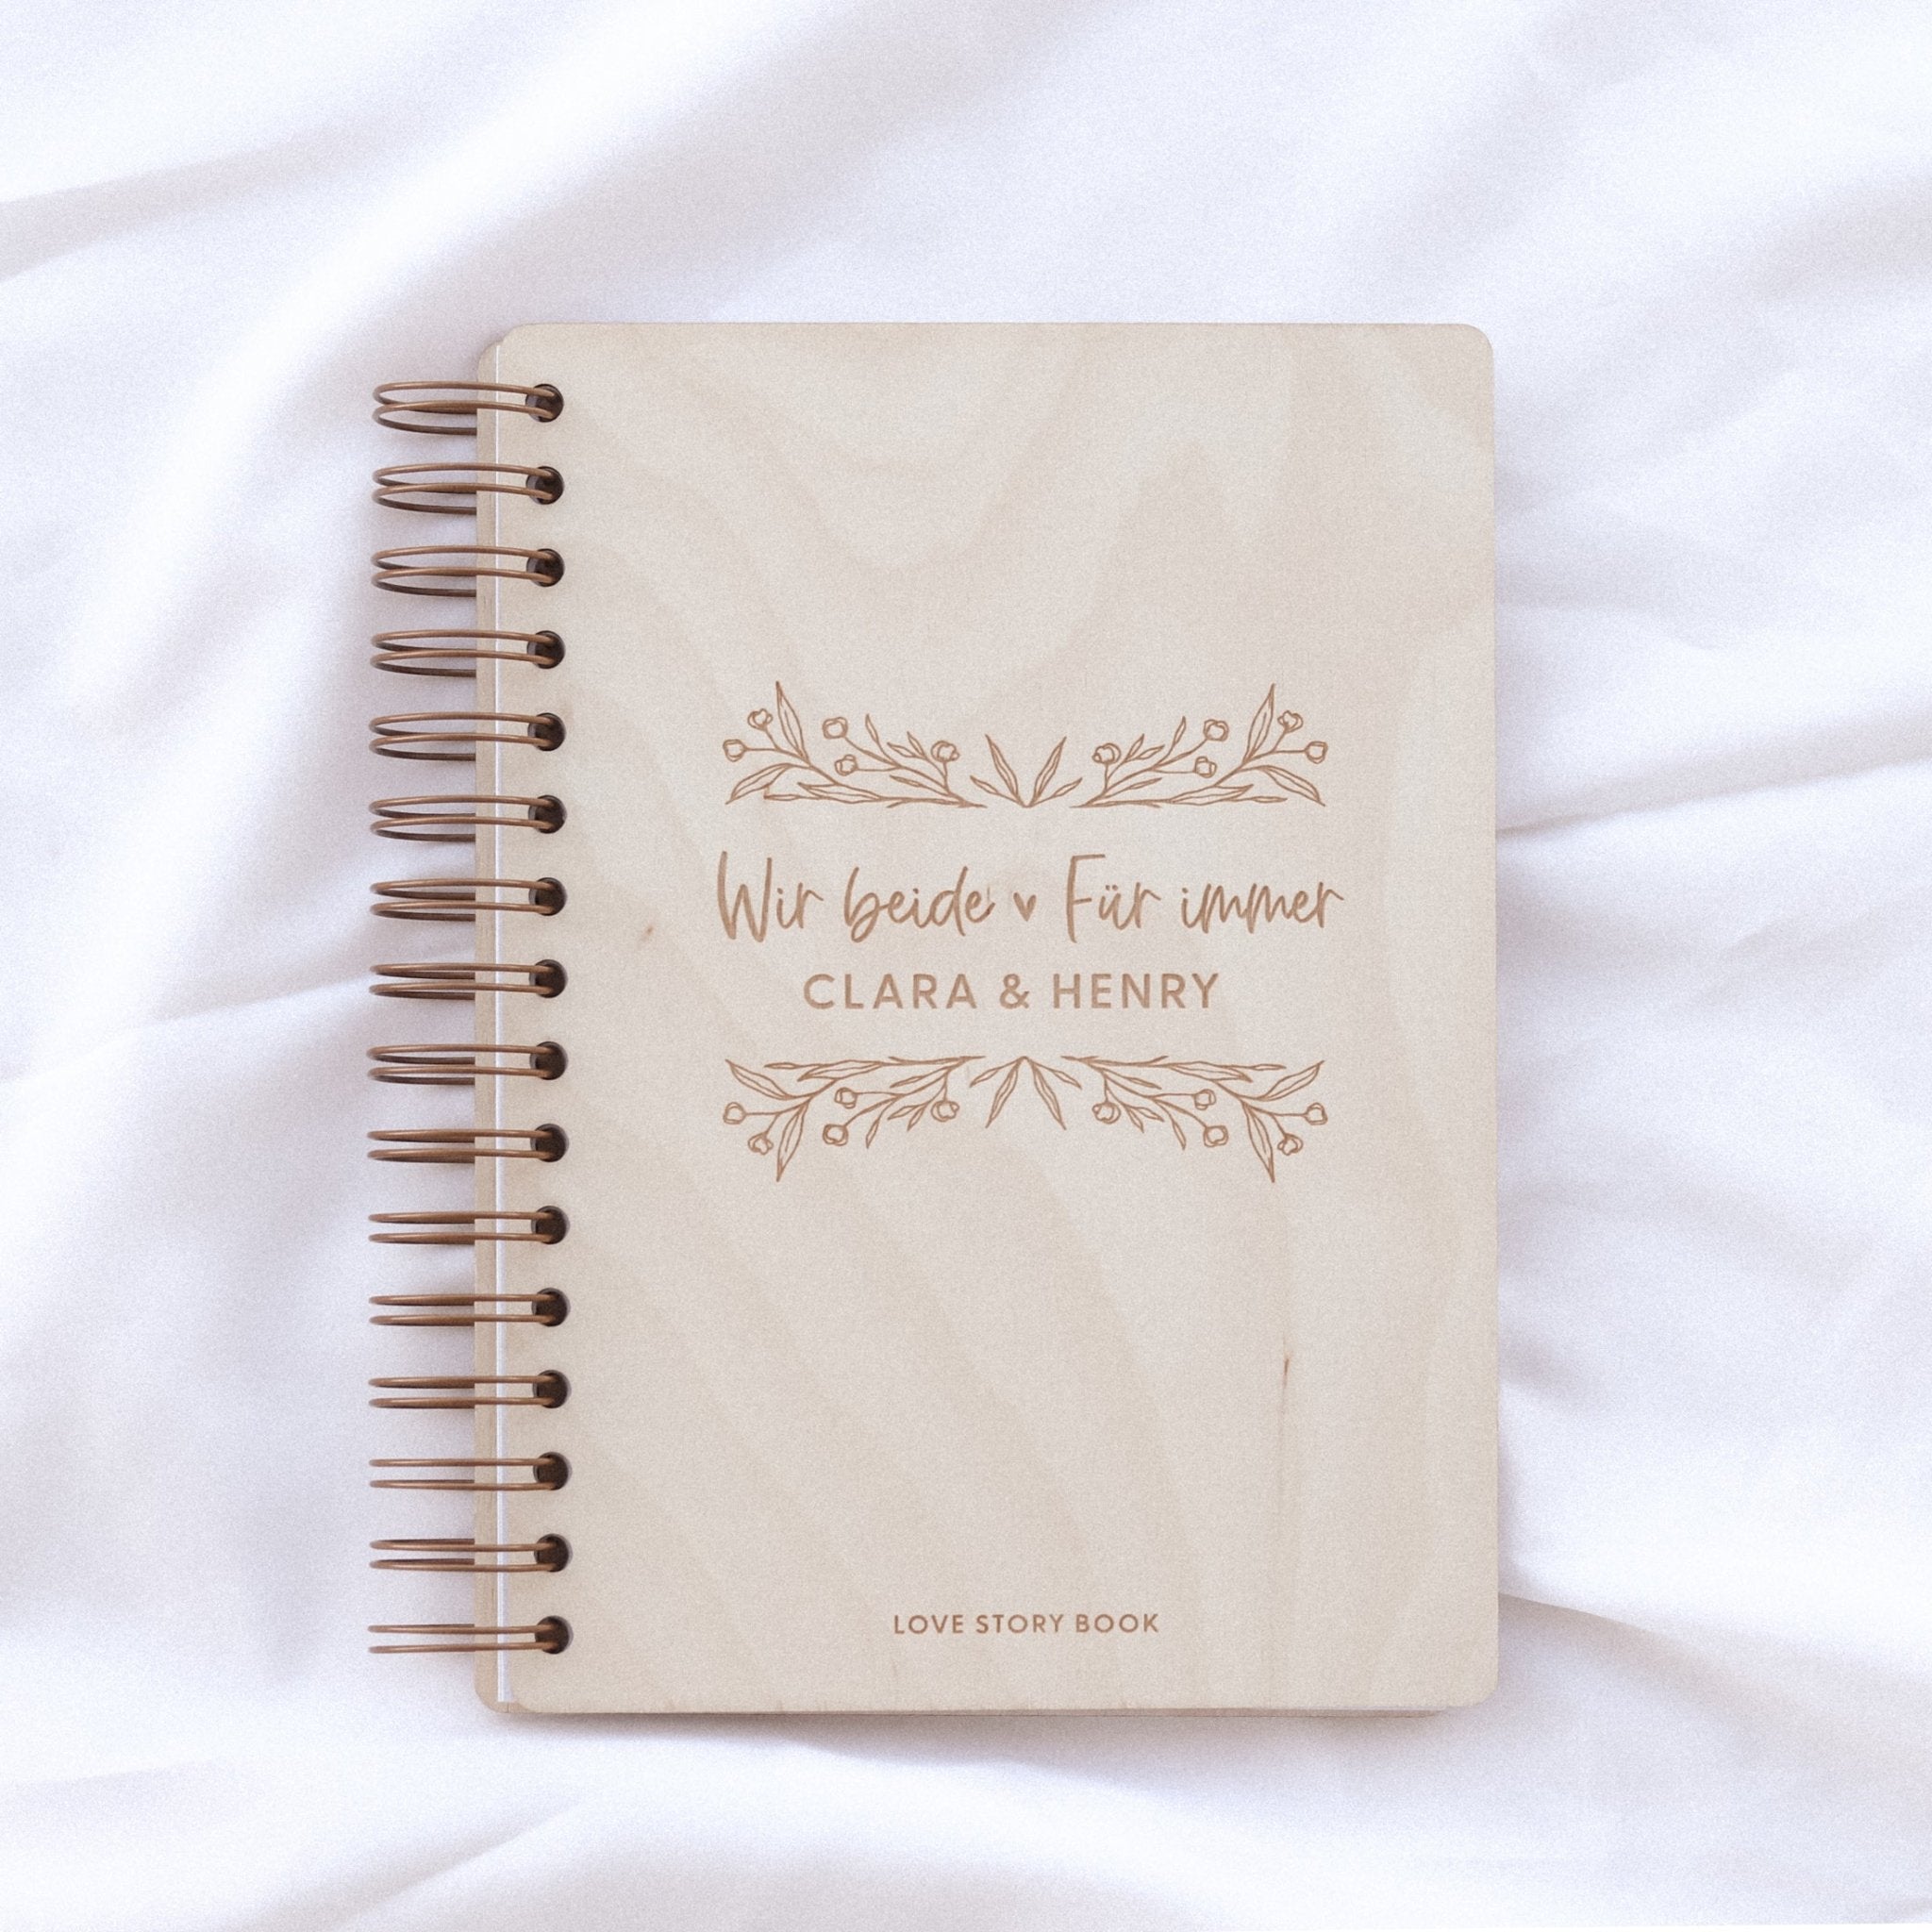 Wir beide ♥ Für immer
CLARA & HENRY
LOVE STORY BOOK